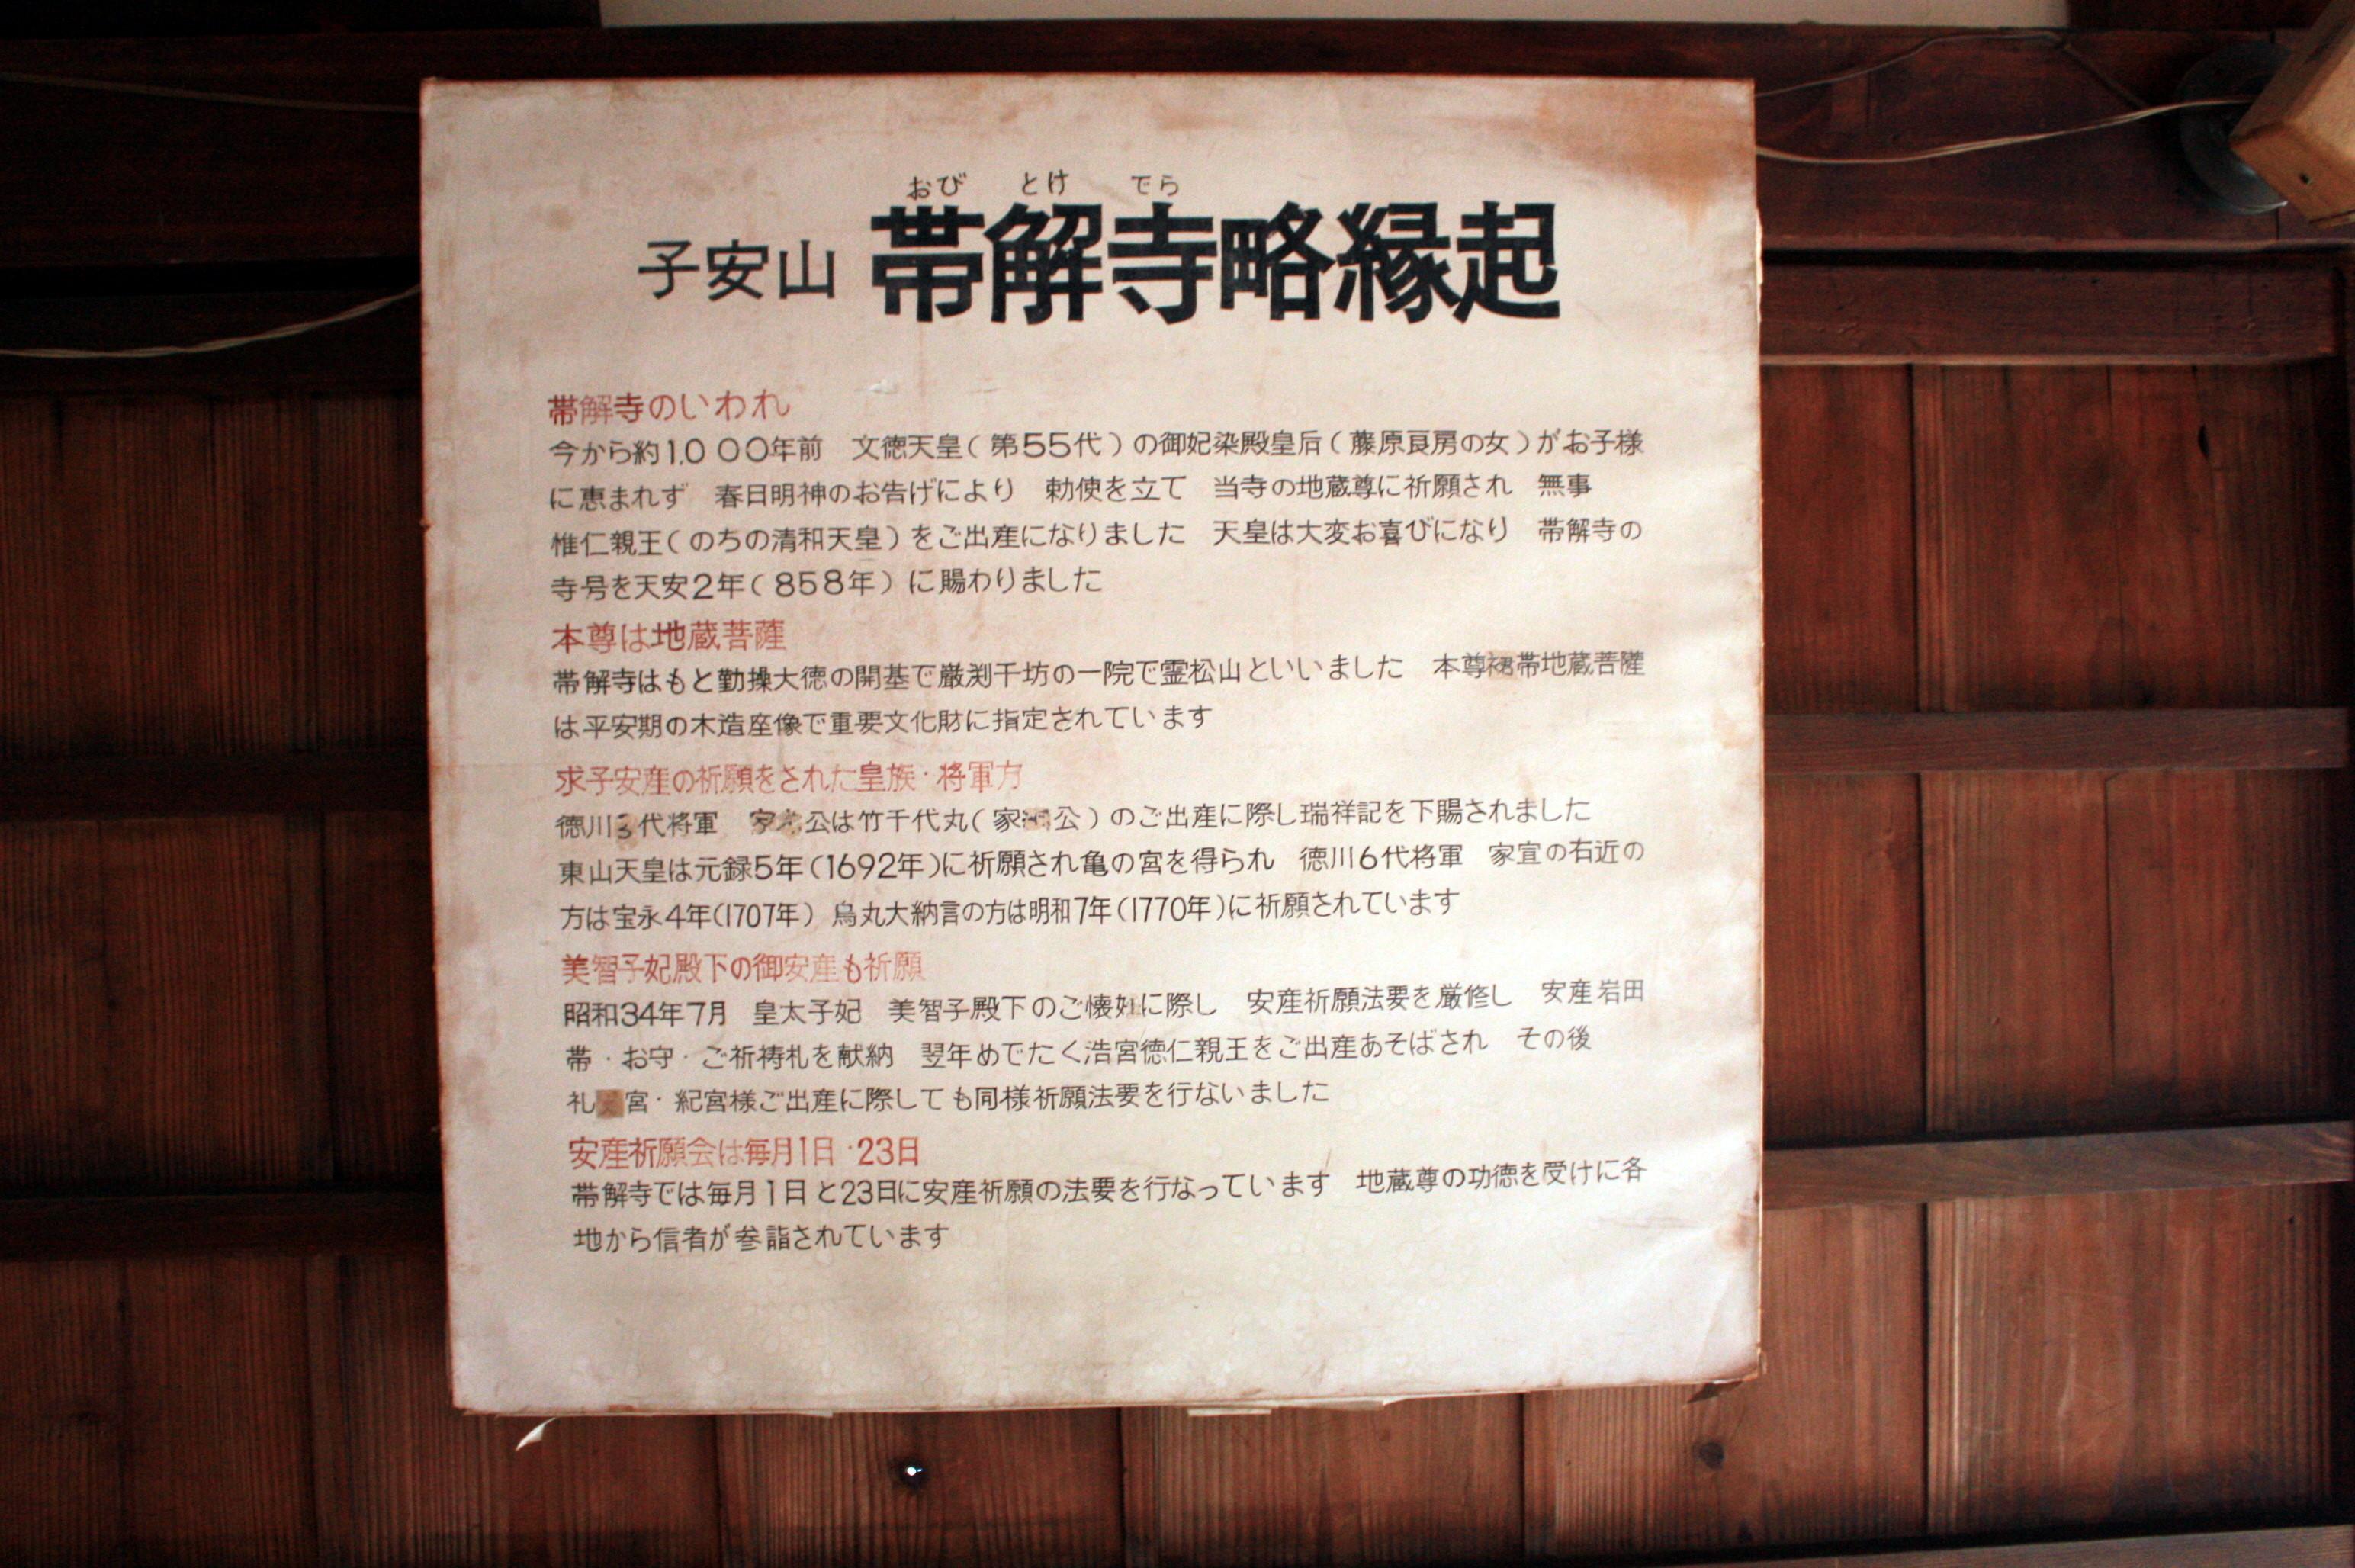 おび とけ でら
子安山 帯解寺略縁起
帯解寺のいわれ
今から約1,000年前 文徳天皇(第55代)の御妃染殿皇后(藤原良房の女)がお子様
に恵まれず 春日明神のお告げにより 勅使を立て 当寺の地蔵尊に祈願され 無事
惟仁親王(のちの清和天皇)をご出産になりました 天皇は大変お喜びになり 帯解寺の
寺号を天安2年(858年)に賜わりました
本尊は地蔵菩薩
帯解寺はもと勤操大徳の開基で巌渕千坊の一院で霊松山といいました 本尊裙帯地蔵菩薩
は平安期の木造座像で重要文化財に指定されています
求子安産の祈願をされた皇族・将軍方
徳川3代将軍 家光公は竹千代丸(家綱公)のご出産に際し瑞祥記を下賜されました
東山天皇は元録5年(1692年)に祈願され亀の宮を得られ 徳川6代将軍 家宣の右近の
方は宝永4年(1707年) 烏丸大納言の方は明和7年(1770年)に祈願されています
美智子妃殿下の御安産も祈願
昭和34年7月 皇太子妃 美智子殿下のご懐妊に際し 安産祈願法要を厳修し 安産岩田
帯・お守・ご祈祷札を献納 翌年めでたく浩宮徳仁親王をご出産あそばされ その後
礼宮・紀宮様ご出産に際しても同様祈願法要を行ないました
安産祈願会は毎月1日・23日
帯解寺では毎月1日と23日に安産祈願の法要を行なっています 地蔵尊の功徳を受けに各
地から信者が参詣されています